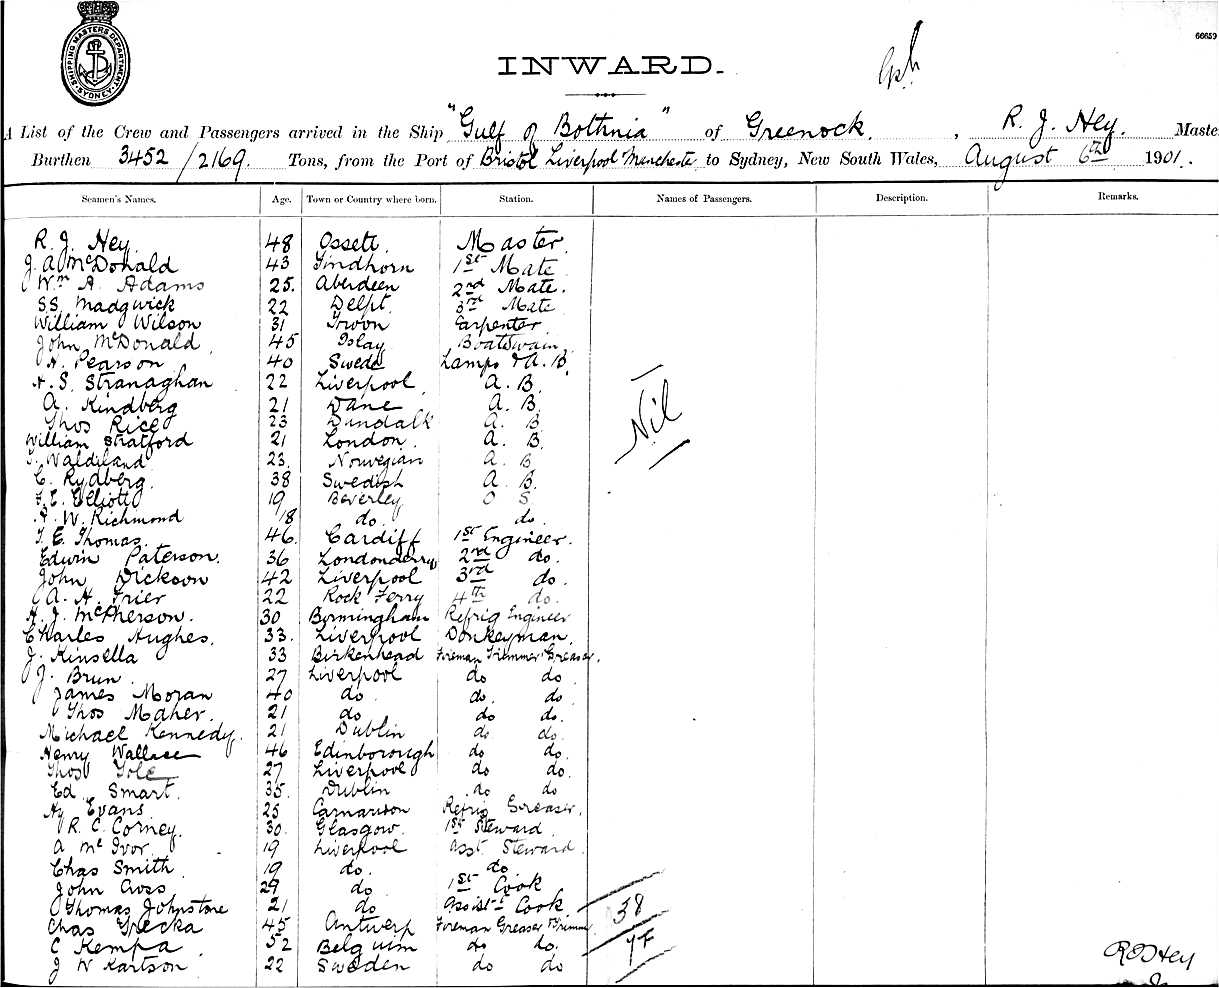 SHIPPING MASTERS DEPARTMENT SYDNEY
66659
INWARD.
A List of the Crew and Passengers arrived in the Ship "Gulf of Bothnia" of Greenock, R. J. Hey. Maste
Burthen 3452/2169. Tons, from the Port of Bristol Liverpool Manchester to Sydney, New South Wales, August 6th 1901.
Seamen's Names. Age. Town or Country where born. Station. Names of Passengers. Description. Remarks.
R. J. Hey. 48 Ossett. Master.
J. A. McDonald 43 Findhorn 1st Mate
Wm A. Adams 25. Aberdeen 2nd Mate.
S.S. Madgwick 22 Delft 3rd Mate
William Wilson 31 Troon Carpenter
John McDonald 45 Islay Boatswain
A. Pearson 40 Swede Lamps & A.B.
A. S. Stranaghan 22 Liverpool A. B.
A. Kindberg 21 Dane A. B.
Thos Rice 23 Dundalk A. B.
William Stratford 21 London. A. B.
Nil
23. Norwegian A. B.
C. Rydberg. 38 Swedish A. B.
Elliott 19 Beverley O S
W. Richmond 18 do. do.
T. E. Thomas. 46. Cardiff 1st Engineer.
Edwin Paterson. 36 Londonderry 2nd do.
John Dickson 42 Liverpool 3rd do.
A. H. Frier 22 Rock Ferry 4th do.
A. J. McPherson. 30 Birmingham Refrig Engineer
Charles Hughes. 33. Liverpool Donkeyman.
J. Kinsella 33 Birkenhead Foreman Trimmer Greaser.
J. Brun. 27 Liverpool do do.
James Moran 40 do. do. do.
Thos Maher. 21 do do do.
Michael Kennedy. 21 Dublin do do.
Henry Wallace 46 Edinborough do do.
Thos 27 Liverpool do do.
Ed. Smart. 35. Dublin do do
Hy Evans 25 Carnarvon Refrig Greaser.
R. C. Corney. 30. Glasgow. 1st Steward
A McIvor. 19 Liverpool Asst Steward.
Chas Smith 19 do. do
John Cross 29 do 1st Cook
Thomas Johnstone 21 do Assist Cook
38
Chas Grecka 45 Antwerp Foreman Greaser Trimmer
C Kempa 52 Belguim do do.
J W Karlson 22 Sweden do do
R J Hey